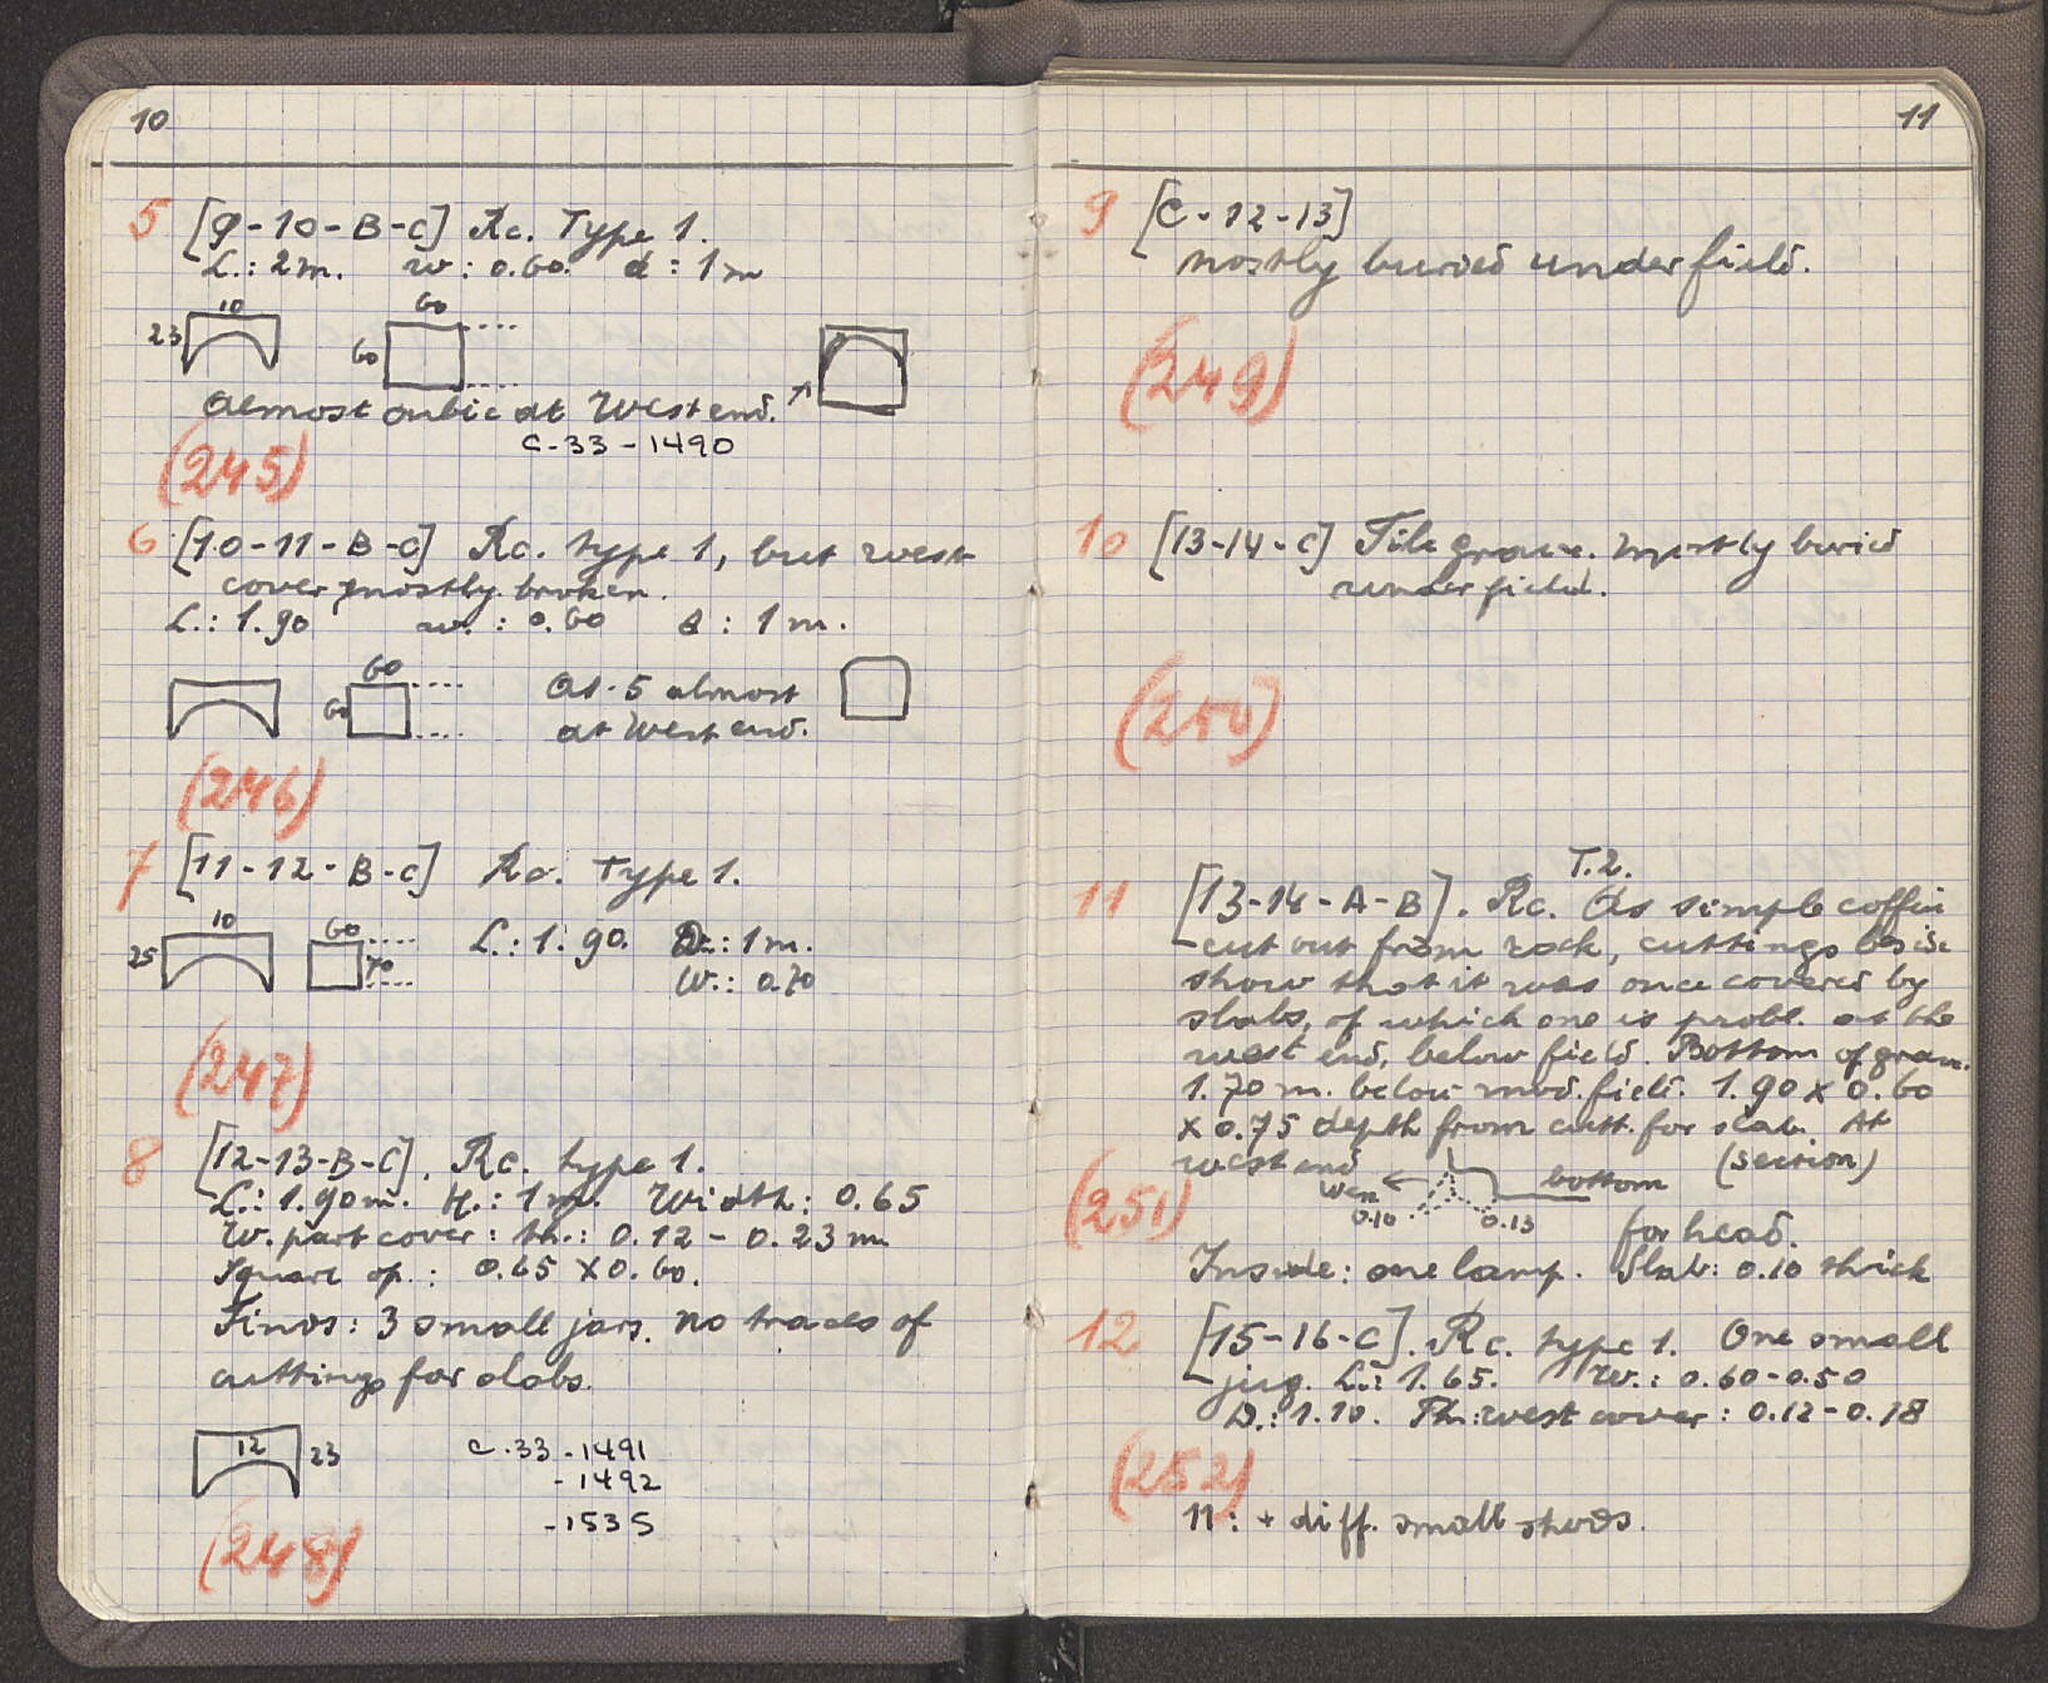 10
5 [9-10-B-C] Rc. Type 1.
L.: 2m. w: 0.60. d: 1m
10
23
60
60
Almost cubic at West end. ↗
C-33-1490
(245)
6 [10-11-B-C] Rc. type 1, but west
cover mostly broken.
L.: 1.90 w.: 0.60 d: 1m.
60
60
As 5 almost
at West end.
(246)
7 [11-12-B-C] Rc. Type 1.
10
25
60
70
L.: 1.90. D.: 1m.
W.: 0.70
(247)
8 [12-13-B-C]. Rc. type 1.
L.: 1.90m. H.: 1m. Width: 0.65
W. part cover: th.: 0.12 - 0.23 m
Square op.: 0.65 x 0.60.
Finds: 3 small jars. No traces of
cuttings for slabs.
12
23
C-33-1491
-1492
-1535
(248)
11
9 [C-12-13]
mostly buried under field.
(249)
10 [13-14-C] Tile grave. Mostly buried
under field.
(250)
T.2.
11 [13-14-A-B]. Rc. As simple coffin
cut out from rock, cuttings beside
show that it was once covered by
slabs, of which one is probl. at the
west end, below field. Bottom of grave
1.70 m. below mod. field. 1.90 x 0.60
x 0.75 depth from cutt. for slab. At
west end
West ←
0.10
0.13
bottom
(section)
for head.
(251)
Inside: one lamp. Slab: 0.10 thick
12 [15-16-C]. Rc. type 1. One small
jug. L.: 1.65. W.: 0.60-0.50
D.: 1.10. Th.: west cover: 0.12-0.18
(252)
11: + diff. small sherds.